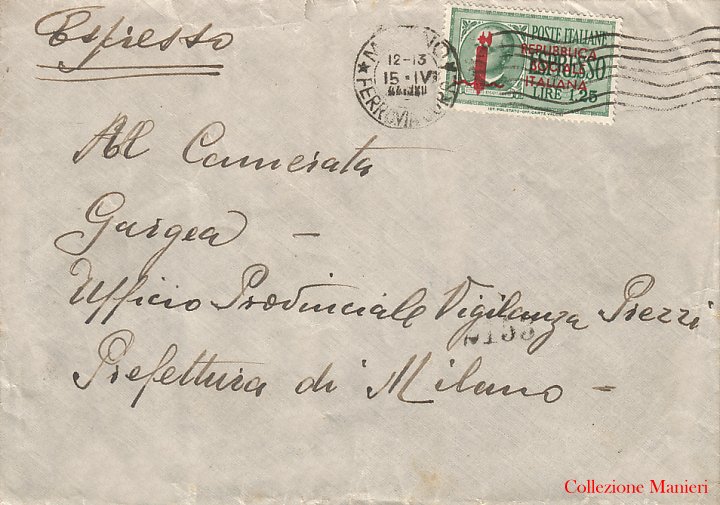 Espresso
POSTE ITALIANE
ESPRESSO
REPUBBLICA
SOCIALE
ITALIANA
LIRE 1,25
MILANO
12-13
15·IV
FERROVIA
Al Camerata
Gargea –
Ufficio Provinciale Vigilanza Prezzi
Prefettura di Milano –
Collezione Manieri